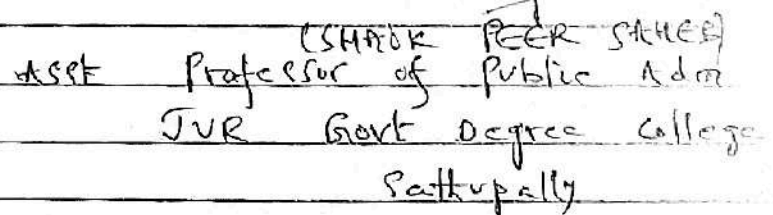 (SHAIK PEER SAHEB)
Asst Professor of Public Adm
JVR Govt Degree College
Sathupally